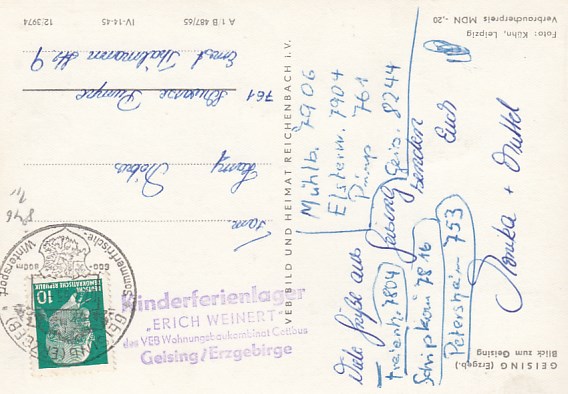 GEISING (Erzgeb.)
Blick zum Geising
Viele Grüße aus
Geising
senden
Euch
Monika +
Mühlb. 7906
Elsterw. 7904
Pump 761
Geis. 8244
Freienh. 7804
Schipkau 7816
Petershain 753
Foto: Kühn, Leipzig
Verbraucherpreis MDN -,20
VEB BILD UND HEIMAT REICHENBACH I.V.
A 1/B 487/65
IV-14-45
12/3974
Fam.
Harry
761 Schwarze Pumpe
Ernst Thälmann Str. 9
Sommerfrische
Wintersport
600-800m
GEISING (ERZGEB)
DEUTSCHE DEMOKRATISCHE REPUBLIK
10
Kinderferienlager
„ERICH WEINERT"
des VEB Wohnungsbaukombinat Cottbus
Geising/Erzgebirge